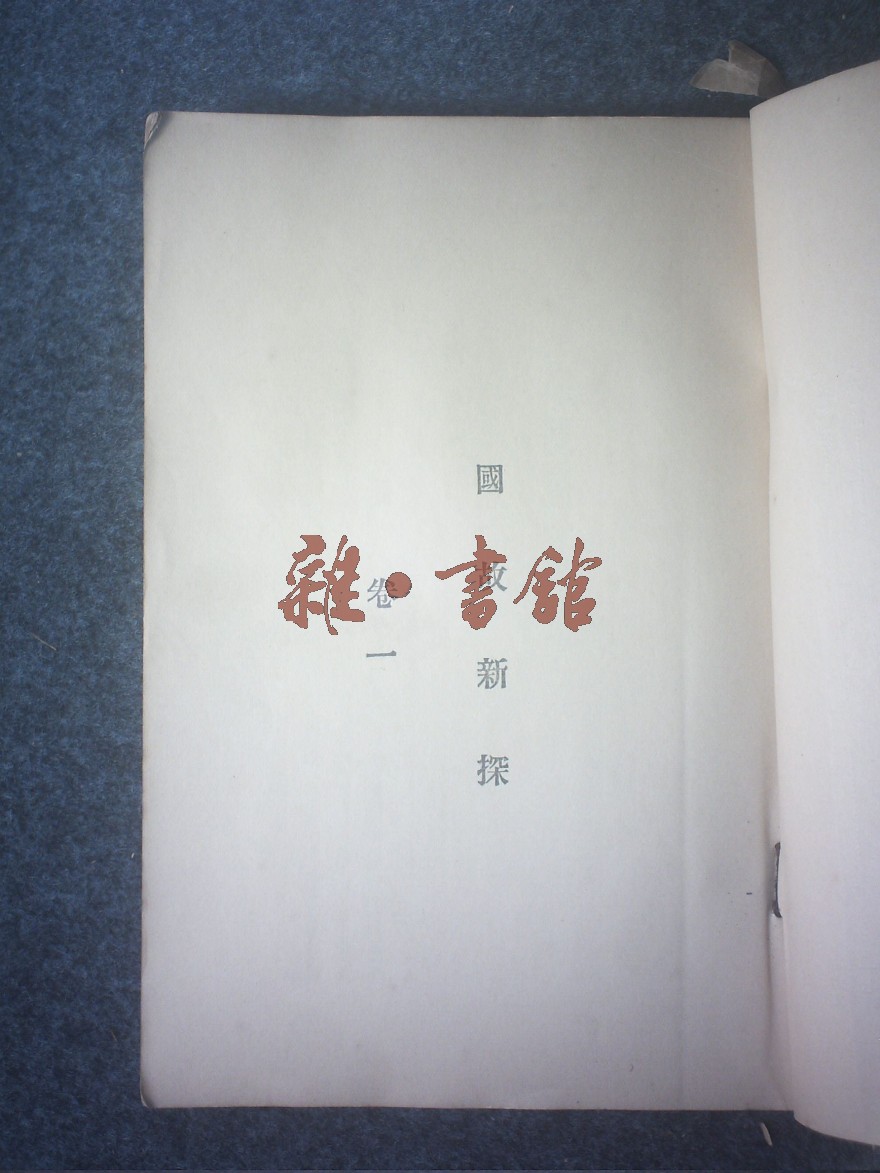 國故新探
卷一
雜·書館